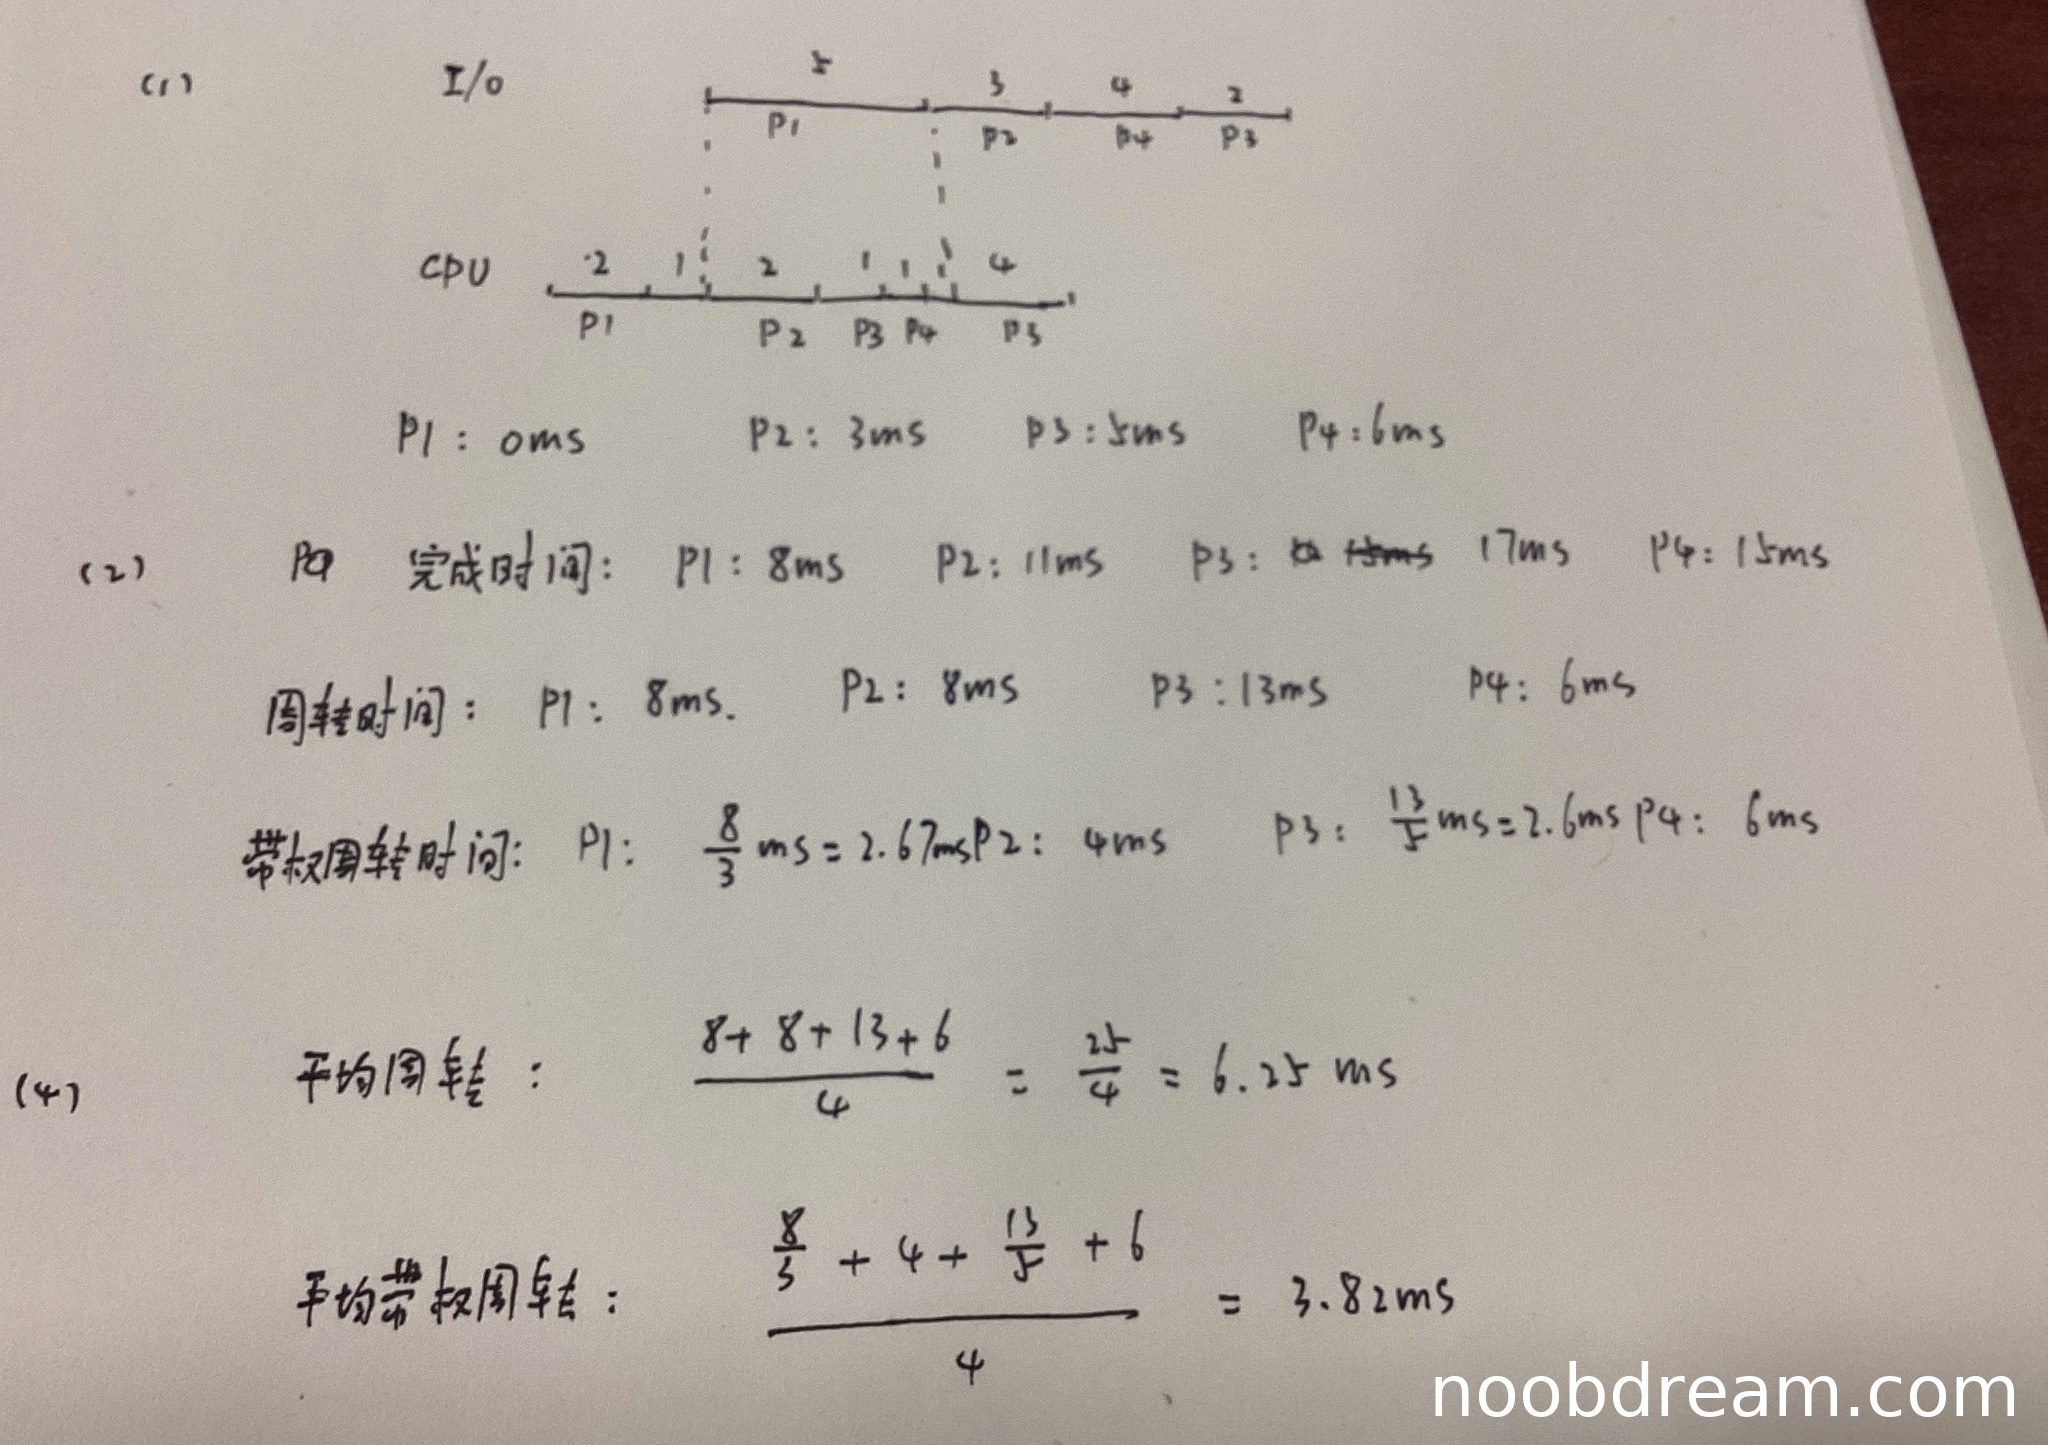 (1) I/O 5 3 4 2
P1 P2 P4 P3
CPU 2 1 2 1 1 4
P1 P2 P3 P4 P3
P1: 0ms P2: 3ms P3: 5ms P4: 6ms
(2) 完成时间: P1: 8ms P2: 11ms P3: 15ms 17ms P4: 15ms
周转时间: P1: 8ms. P2: 8ms P3: 13ms P4: 6ms
带权周转时间: P1: 8/3 ms = 2.67ms P2: 4ms P3: 13/5 ms = 2.6ms P4: 6ms
(4) 平均周转: 8+8+13+6/4 = 25/4 = 6.25 ms
平均带权周转: 8/3 + 4 + 13/5 + 6/4 = 3.82ms
noobdream.com